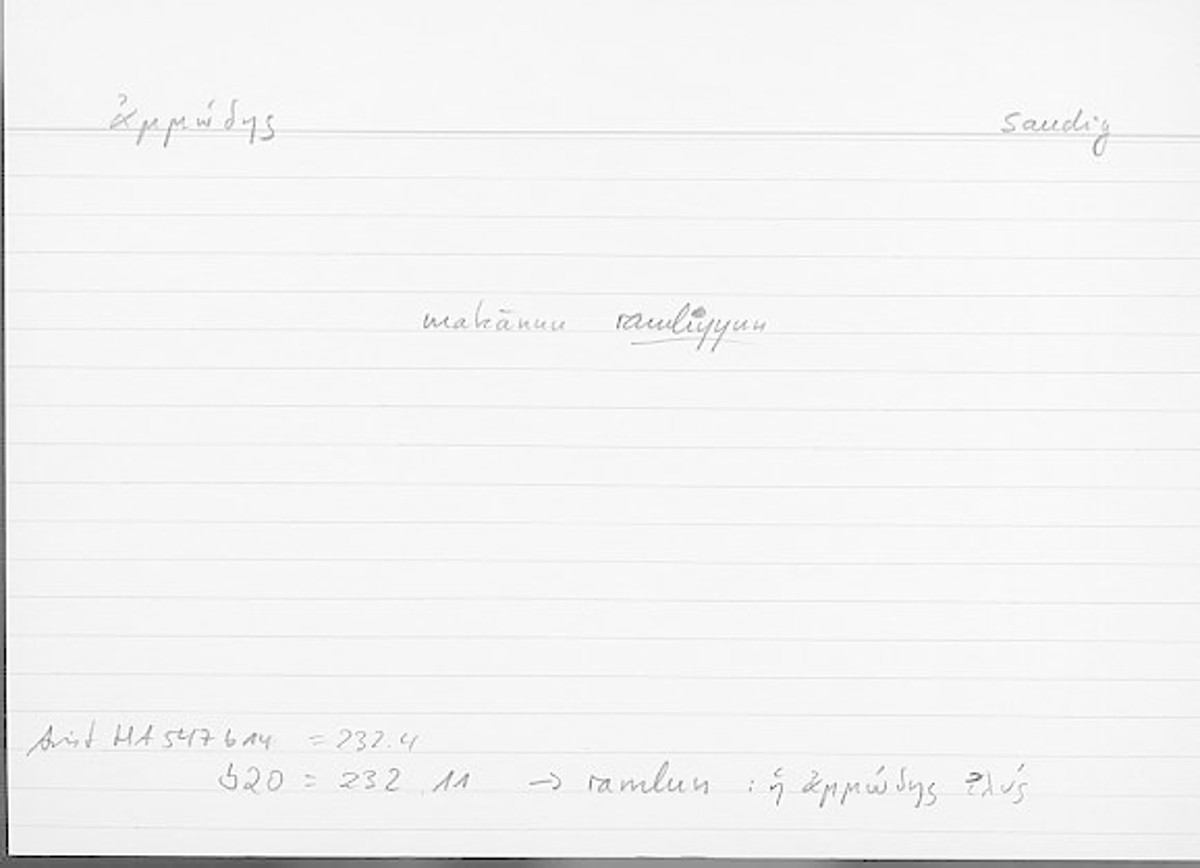 ἀμμώδης sandig
makānun ramliyyun
Arist HA 547 b 14 = 232.4
b20 = 232.11 → ramlun : ἡ ἀμμώδης ἰλύς